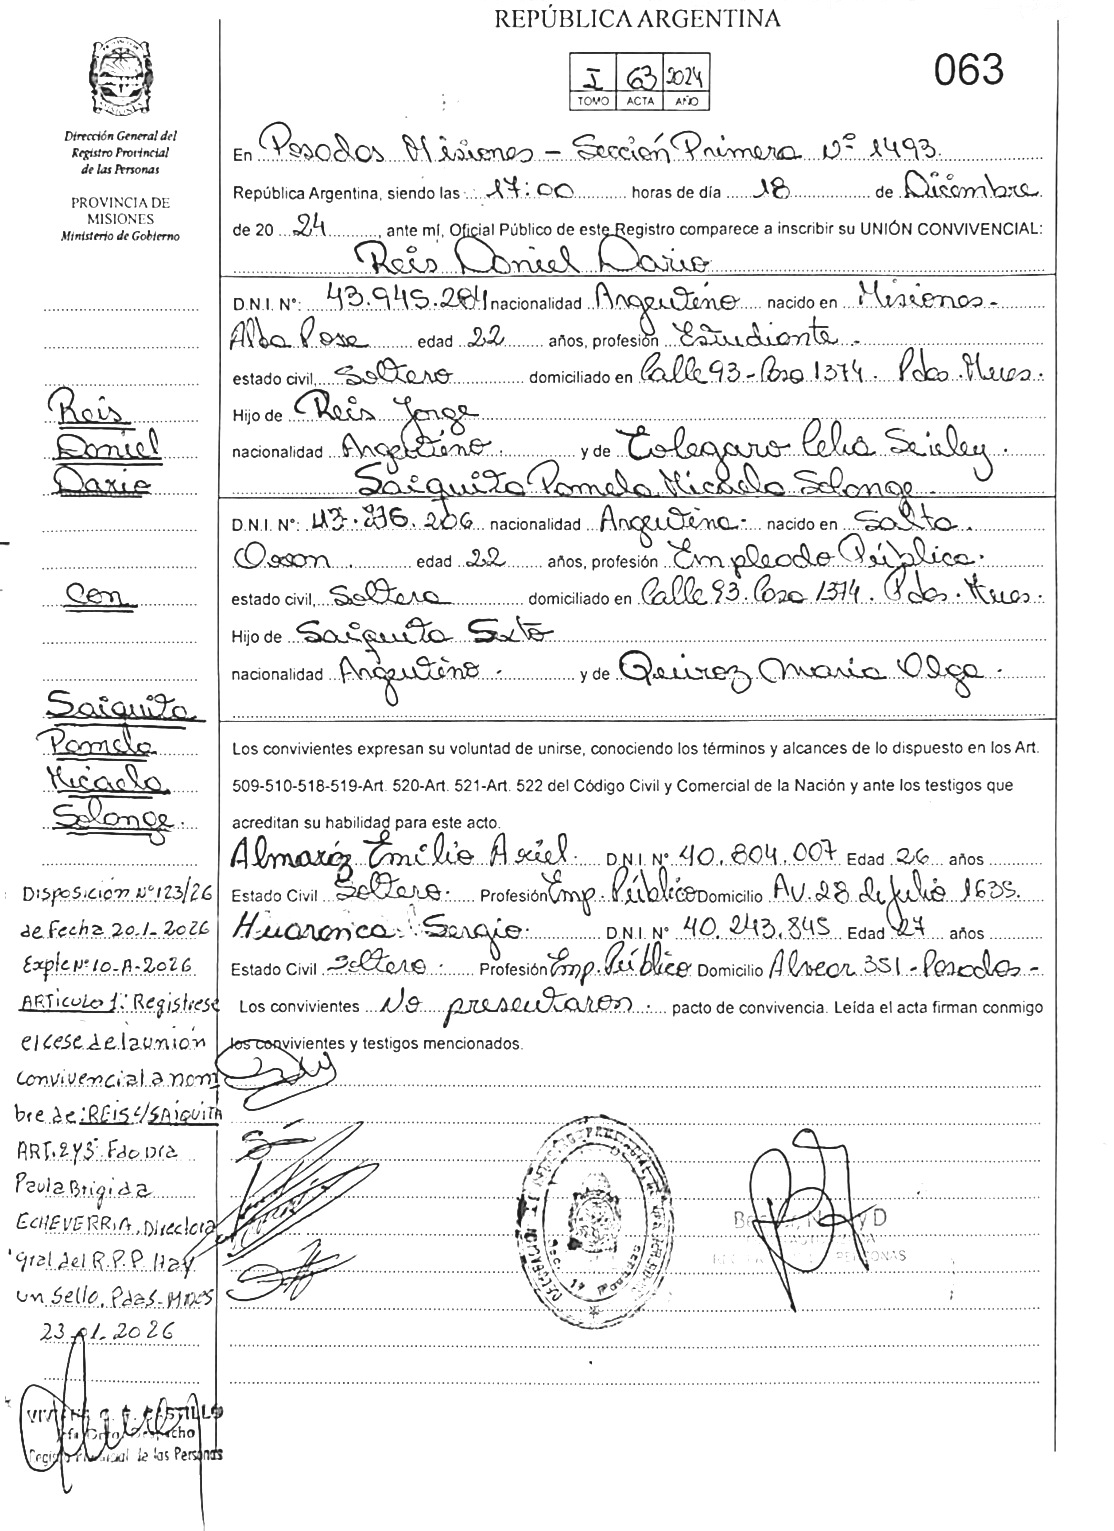 REPÚBLICA ARGENTINA
I 63 2024
TOMO ACTA AÑO
063
Dirección General del
Registro Provincial
de las Personas
PROVINCIA DE
MISIONES
Ministerio de Gobierno
En Posadas Misiones - Sección Primera Nº 1493.
República Argentina, siendo las 17:00 horas de día 18 de Diciembre
de 20 24, ante mí, Oficial Público de este Registro comparece a inscribir su UNIÓN CONVIVENCIAL:
Reis Daniel Dario
D.N.I. N°: 43.945.284 nacionalidad Argentino nacido en Misiones-
Alba Pose edad 22 años, profesión Estudiante.
estado civil, Soltero domiciliado en Calle 93-Casa 1374. Pdas. Mnes.
Hijo de Reis Jorge
nacionalidad Argentino y de Celia
Saiquita Pamela Micaela Solange
D.N.I. N°: nacionalidad Argentina. nacido en Salta
Oran edad 22 años, profesión Empleada Pública.
estado civil, Soltera domiciliado en Calle 93. Casa 1374. Pdas. Mnes.
Hijo de Saiquita Sixto
nacionalidad Argentino. y de Queiroz Maria Olga.
Los convivientes expresan su voluntad de unirse, conociendo los términos y alcances de lo dispuesto en los Art.
509-510-518-519-Art. 520-Art. 521-Art. 522 del Código Civil y Comercial de la Nación y ante los testigos que
acreditan su habilidad para este acto.
Almaróz Emilio Ariel. D.N.I. N° 40.804.007 Edad 26 años
Estado Civil Soltero. Profesión Emp. Público Domicilio AV. 28 de Julio 1635.
Huaranca Sergio. D.N.I. N° 40.243.845 Edad 27 años
Estado Civil Soltero. Profesión Emp. Público Domicilio Alvear 351-Posadas-
Los convivientes No presentaron. pacto de convivencia. Leída el acta firman conmigo
los convivientes y testigos mencionados.
Reis
Daniel
Dario
Con
Saiquita
Pamela
Micaela
Solange.
Disposición Nº 123/26
de Fecha 20.1-2026
Expte Nº 10-A-2026
ARTICULO 1: Registrese
el cese de la unión
Convivencial a nom
bre de: REIS C/SAIQUITA
ART. 2 y 3 Fdo Dra
Paula Brigida
ECHEVERRIA. Directora
Gral del R.P.P Hay
un Sello. Pdas-Mnes
23-01-2026
CASTILLO
Despacho
Registro Provincial de las Personas